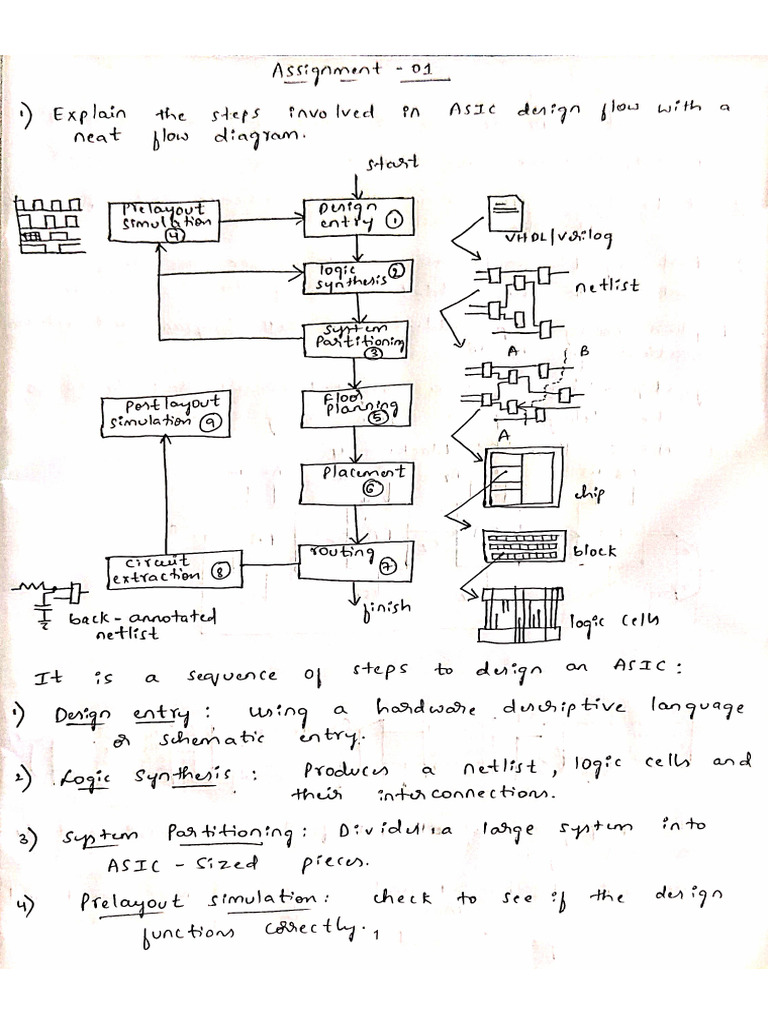 Assignment - 01
1) Explain the steps involved in ASIC design flow with a
neat flow diagram.
start
Prelayout
simulation
4
Design
entry 1
VHDL/Verilog
logic 2
synthesis
netlist
system
partitioning
3
A B
Postlayout
simulation 9
Floor
planning
5
A
placement
6
chip
circuit
extraction 8
routing
7
block
finish
back-annotated
netlist
logic cells
It is a sequence of steps to design an ASIC:
1) Design entry: Using a hardware descriptive language
or schematic entry.
2) Logic Synthesis: Produces a netlist, logic cells and
their interconnections.
3) System Partitioning: Divides a large system into
ASIC - Sized pieces.
4) Prelayout simulation: check to see if the design
functions correctly.
1